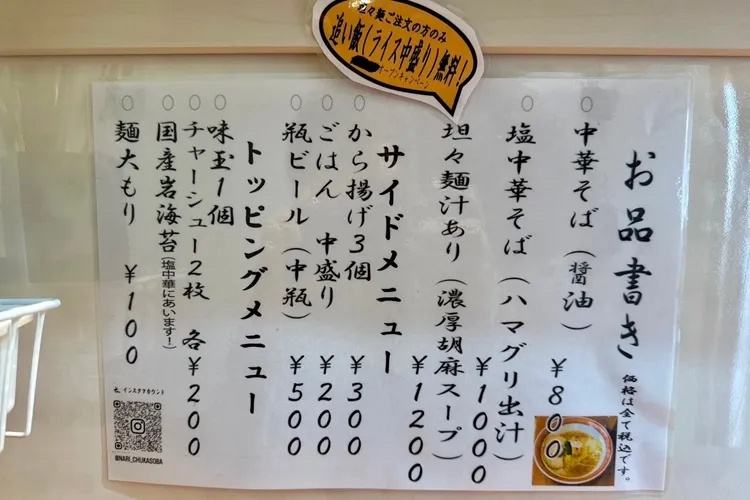 坦々麺ご注文の方のみ
追い飯(ライス中盛り)無料!
オープンキャンペーン
お品書き
価格は全て税込です。
○ 中華そば(醤油) ¥800
○ 塩中華そば(ハマグリ出汁) ¥1000
坦々麺汁あり(濃厚胡麻スープ) ¥1200
サイドメニュー
○ から揚げ3個 ¥300
○ ごはん 中盛り ¥200
○ 瓶ビール(中瓶) ¥500
トッピングメニュー
○ 味玉1個
○ チャーシュー2枚 各¥200
○ 国産岩海苔(塩中華にあいます!)
○ 麺大もり ¥100
インスタアカウント
@NARI_CHUKASOBA